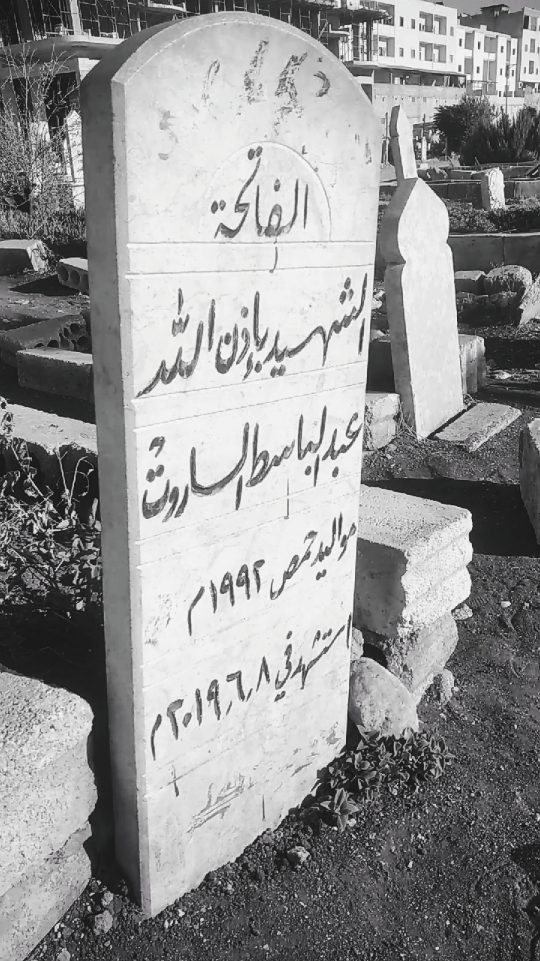 الفاتحة
الشهيد بإذن الله
عبد الباسط الساروت
مواليد حمص ١٩٩٢م
استشهد في ٨ـ٦ـ٢٠١٩م